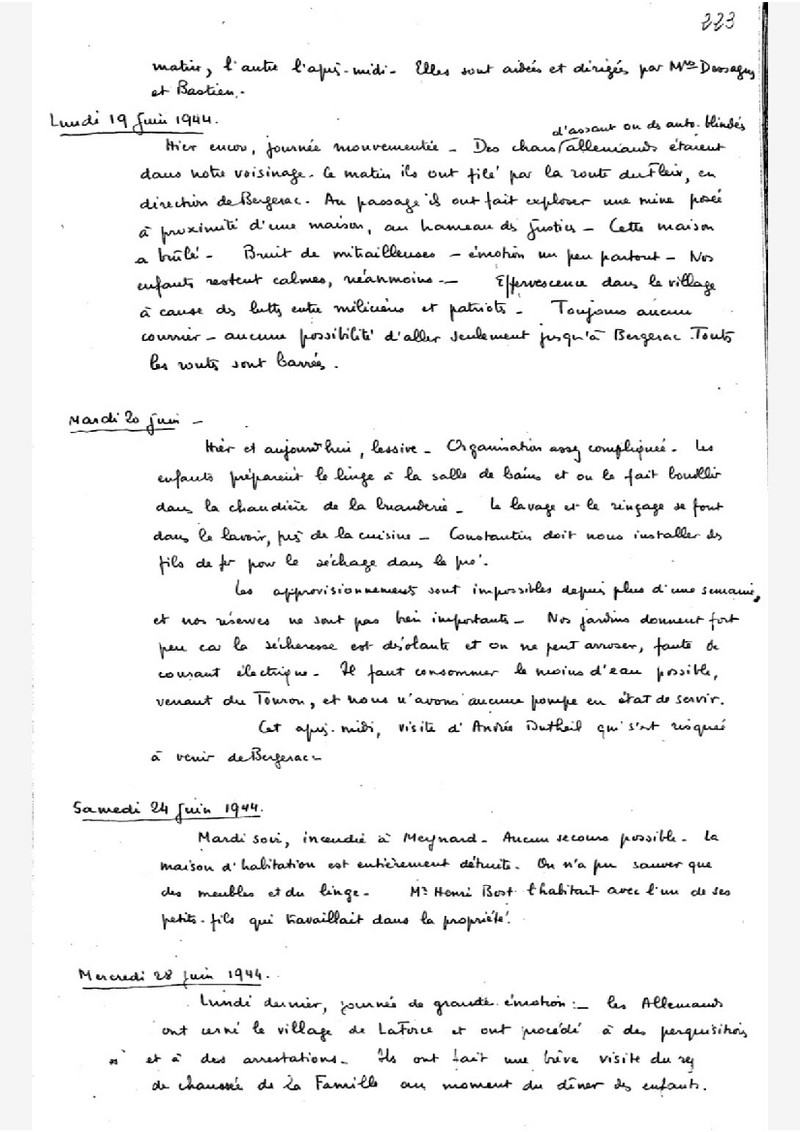 223
matin, l'autre l'après-midi - Elles sont aidées et dirigées par Mmes Dessagnes
et Bastien.-
Lundi 19 Juin 1944.
d'assaut ou des auto-blindés
Hier encore, journée mouvementée - Des chars allemands étaient
dans notre voisinage - Ce matin ils ont filé par la route du Fleix, en
direction de Bergerac. Au passage ils ont fait exploser une mine posée
à proximité d'une maison, au hameau des Justices - Cette maison
a brûlé - Bruit de mitrailleuses - émotion un peu partout - Nos
enfants restent calmes, néanmoins - Effervescence dans le village
à cause des luttes entre miliciens et patriotes - Toujours aucun
courrier - aucune possibilité d'aller seulement jusqu'à Bergerac. Toutes
les routes sont barrées.
Mardi 20 Juin -
Hier et aujourd'hui, lessive - Organisation assez compliquée - Les
enfants préparent le linge à la salle de bains et on le fait bouillir
dans la chaudière de la buanderie - Le lavage et le rinçage se font
dans le lavoir, près de la cuisine - Constantin doit nous installer des
fils de fer pour le séchage dans le pré.
Les approvisionnements sont impossibles depuis plus d'une semaine,
et nos réserves ne sont pas bien importantes - Nos jardins donnent fort
peu car la sécheresse est désolante et on ne peut arroser, faute de
courant électrique - Il faut consommer le moins d'eau possible,
venant du Touron, et nous n'avons aucune pompe en état de servir.
Cet après-midi, visite d'Andrée Dutheil qui s'est risquée
à venir de Bergerac -
Samedi 24 Juin 1944.
Mardi soir, incendie à Meynard - Aucun secours possible - La
maison d'habitation est entièrement détruite - On n'a pu sauver que
des meubles et du linge - Mr Henri Bost l'habitait avec l'un de ses
petits-fils qui travaillait dans la propriété.
Mercredi 28 Juin 1944.
Lundi dernier, journée de grande émotion :- les Allemands
ont cerné le village de Laforce et ont procédé à des perquisitions
et à des arrestations - Ils ont fait une brève visite du rez
de chaussée de la Famille au moment du dîner des enfants.